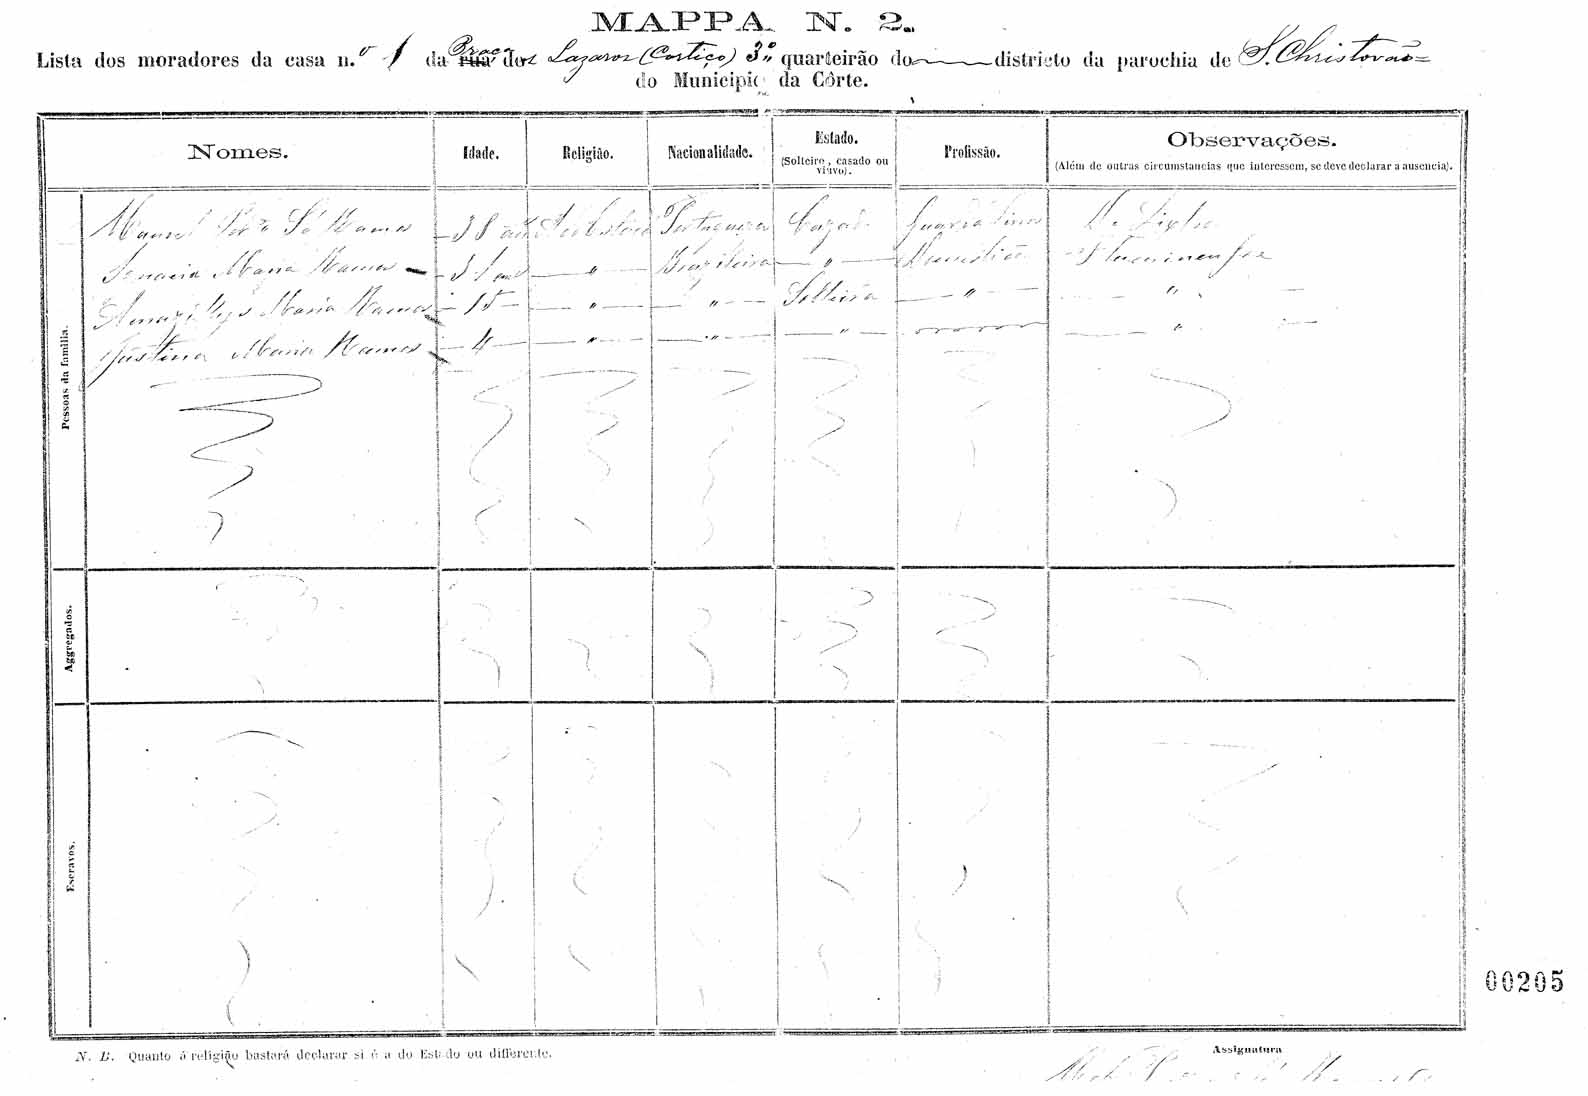 MAPPA N. 2.
Lista dos moradores da casa n.º 1 da Praça rua dos Lazaros (Cortiço) 3º quarteirão do districto da parochia de S. Christovão
do Municipio da Côrte.
Nomes. Idade. Religião. Nacionalidade. Estado. (Solteiro, casado ou viuvo). Profissão. Observações. (Além de outras circumstancias que interessem, se deve declarar a ausencia).
Pessoas da familia.
Manoel Ramos 38 do Estado Portugueza Cazado Guarda
Ignacia Maria Ramos 31 " Brazileira " Domestica Fluminense
Maria Ramos 15 " " Solteira " "
Justina Maria Ramos 4 " " " "
Aggregados.
Escravos.
00205
N. B. Quanto á religião bastará declarar si é a do Estado ou differente.
Assignatura